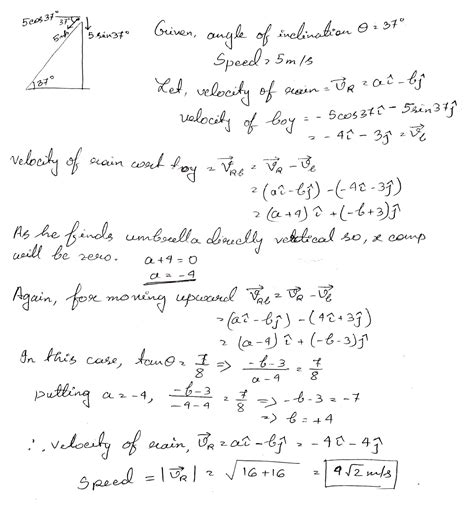 5cos37°
37°
5m/s
5sin37°
37°
Given, angle of inclination θ = 37°
Speed = 5m/s
Let, velocity of rain = V⃗R = aî - bĵ
velocity of boy = -5cos37î - 5sin37ĵ
= -4î - 3ĵ = V⃗b
velocity of rain wort boy = V⃗Rb = V⃗R - V⃗b
= (aî - bĵ) - (-4î - 3ĵ)
= (a+4) î + (-b+3) ĵ
As he finds umbrella directly vertical so, x comp
will be zero. a+4 = 0
a = -4
Again, for moving upward V⃗Rb = V⃗R - V⃗b
= (aî - bĵ) - (4î + 3ĵ)
= (a-4) î + (-b-3) ĵ
In this case, tanθ = 7/8 => (-b-3)/(a-4) = 7/8
putting a = -4, (-b-3)/(-4-4) = 7/8 => -b-3 = -7
=> b = +4
∴ velocity of rain, V⃗R = aî - bĵ = -4î - 4ĵ
Speed = |V⃗R| = √(16+16) = 4√2 m/s